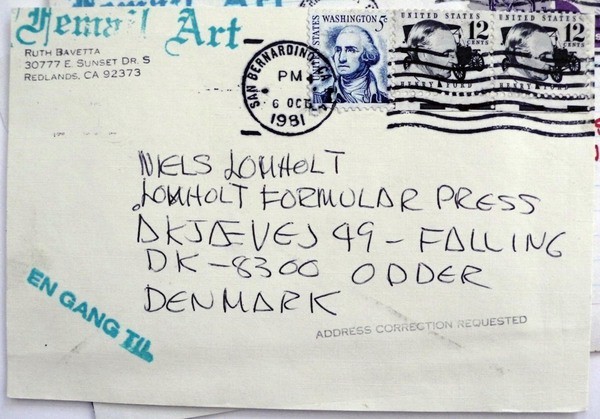 Femail Art
RUTH BAVETTA
30777 E. SUNSET DR. S
REDLANDS, CA 92373
SAN BERNARDINO, CA
PM
6 OCT
1981
UNITED STATES
WASHINGTON 5c
UNITED STATES
12 CENTS
HENRY FORD
UNITED STATES
12 CENTS
HENRY FORD
NIELS LOMHOLT
LOMHOLT FORMULAR PRESS
DKJÆVEJ 49 – FALLING
DK–8300 ODDER
DENMARK
EN GANG TIL
ADDRESS CORRECTION REQUESTED